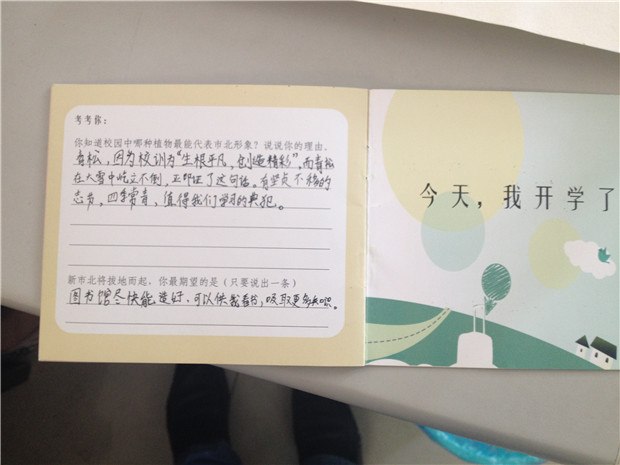 考考你：
你知道校园中哪种植物最能代表市北形象？说说你的理由。
青松，因为校训为“生根平凡，创造精彩”，而青松
在大雪中屹立不倒，正印证了这句话。有坚贞不移的
志节，四季常青，值得我们学习的典犯。
新市北将拔地而起，你最期望的是（只要说出一条）
图书馆尽快能造好，可以供我看书，吸取更多知识。
今天，我开学了